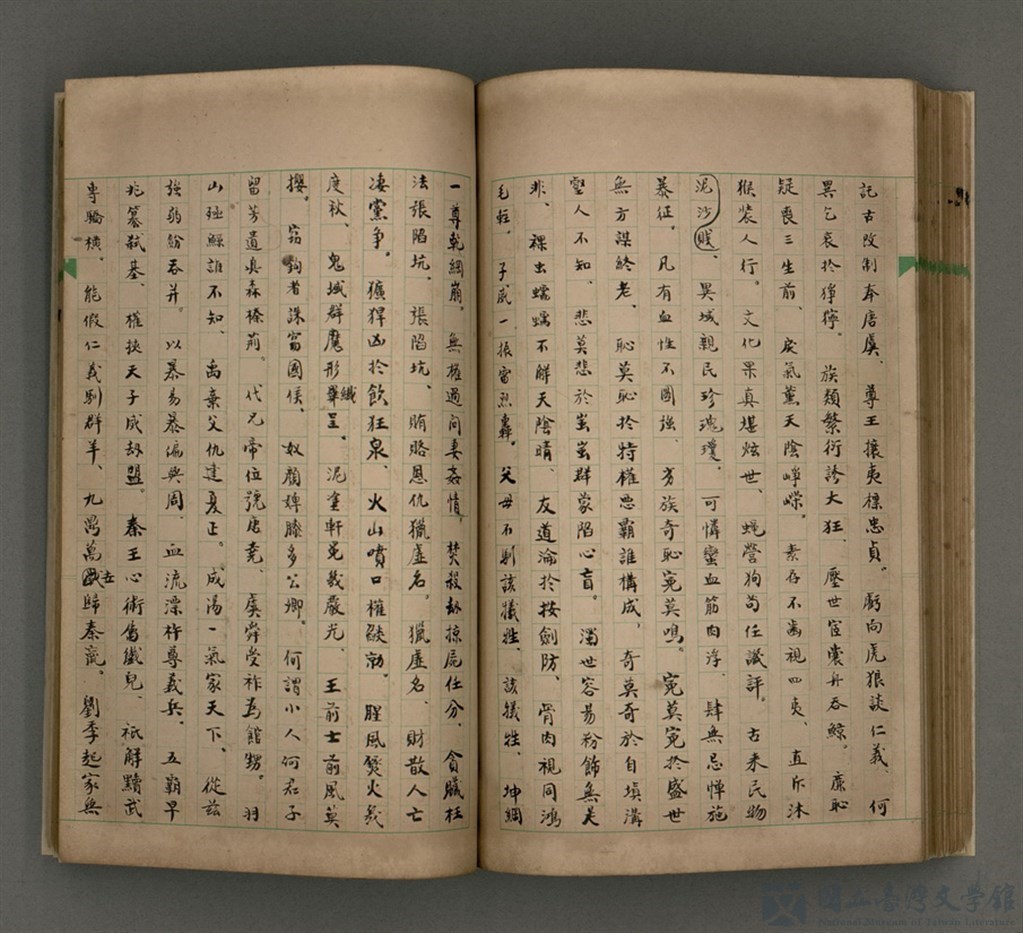 託古改制奉唐虞、尊王攘夷標忠貞。虧向虎狼談仁義、何
異乞哀於猙獰。族類繁衍誇大狂、壓世宦裳舟吞鯨。廉恥
疑喪三生前、戾氣薰天陰崢嶸。素存不齒視四夷、直斥沐
猴裝人行。文化果真堪炫世、蝇營狗苟任譏評。古来民物
泥沙賤、異域親民珍瑰瓊。可憐蠻血筋肉浮、肆無忌憚施
暴征。凡有血性不圖強、劣族奇恥冤莫鳴。冤莫冤於盛世
無方謀終老、恥莫恥於特權惡霸誰構成、奇莫奇於自填溝
壑人不知、悲莫悲於蚩蚩群蒙陷心盲。濁世容易粉飾無美
非、裸虫蠕蠕不解天陰晴、友道淪於按劍防、骨肉視同鴻
毛輕。子威一振雷烈轟。父母不剔該犠牲、該犠牲、坤綱
一尊乾綱崩。無權過问妻姦情。焚殺劫掠屍任分、貪贓枉
法張陷坑。張陷坑、賄賂恩仇獵虛名。獵虛名、財散人亡
凄黨争。獷猂凶於飲狂泉、火山噴口權燄勃。腥風燹火幾
度秋、鬼域群魔形畢纖呈。泥塗軒冕幾嚴光、王前士前風莫
攖。窃鉤者誅富國侯、奴顏婢膝多公卿。何謂小人何君子
留芳遺臭森榛荊。代兄帝位號唐堯、虞舜受祚為館甥。羽
山殛鯀誰不知、禹棄父仇建夏正。成湯一氣家天下、從茲
強弱紛吞并。以暴易暴流與周、血流漂杵尊義兵。五霸早
兆篡弑基、權挾天子成劫盟。秦王心術舊纖兒、祇解黷武
專驕横、能假仁義剔群羊、九萬萬世歸秦嬴。劉季起家無
國立臺灣文學館
National Museum of Taiwan Literature